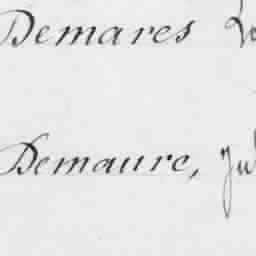 Demares
Demaure,